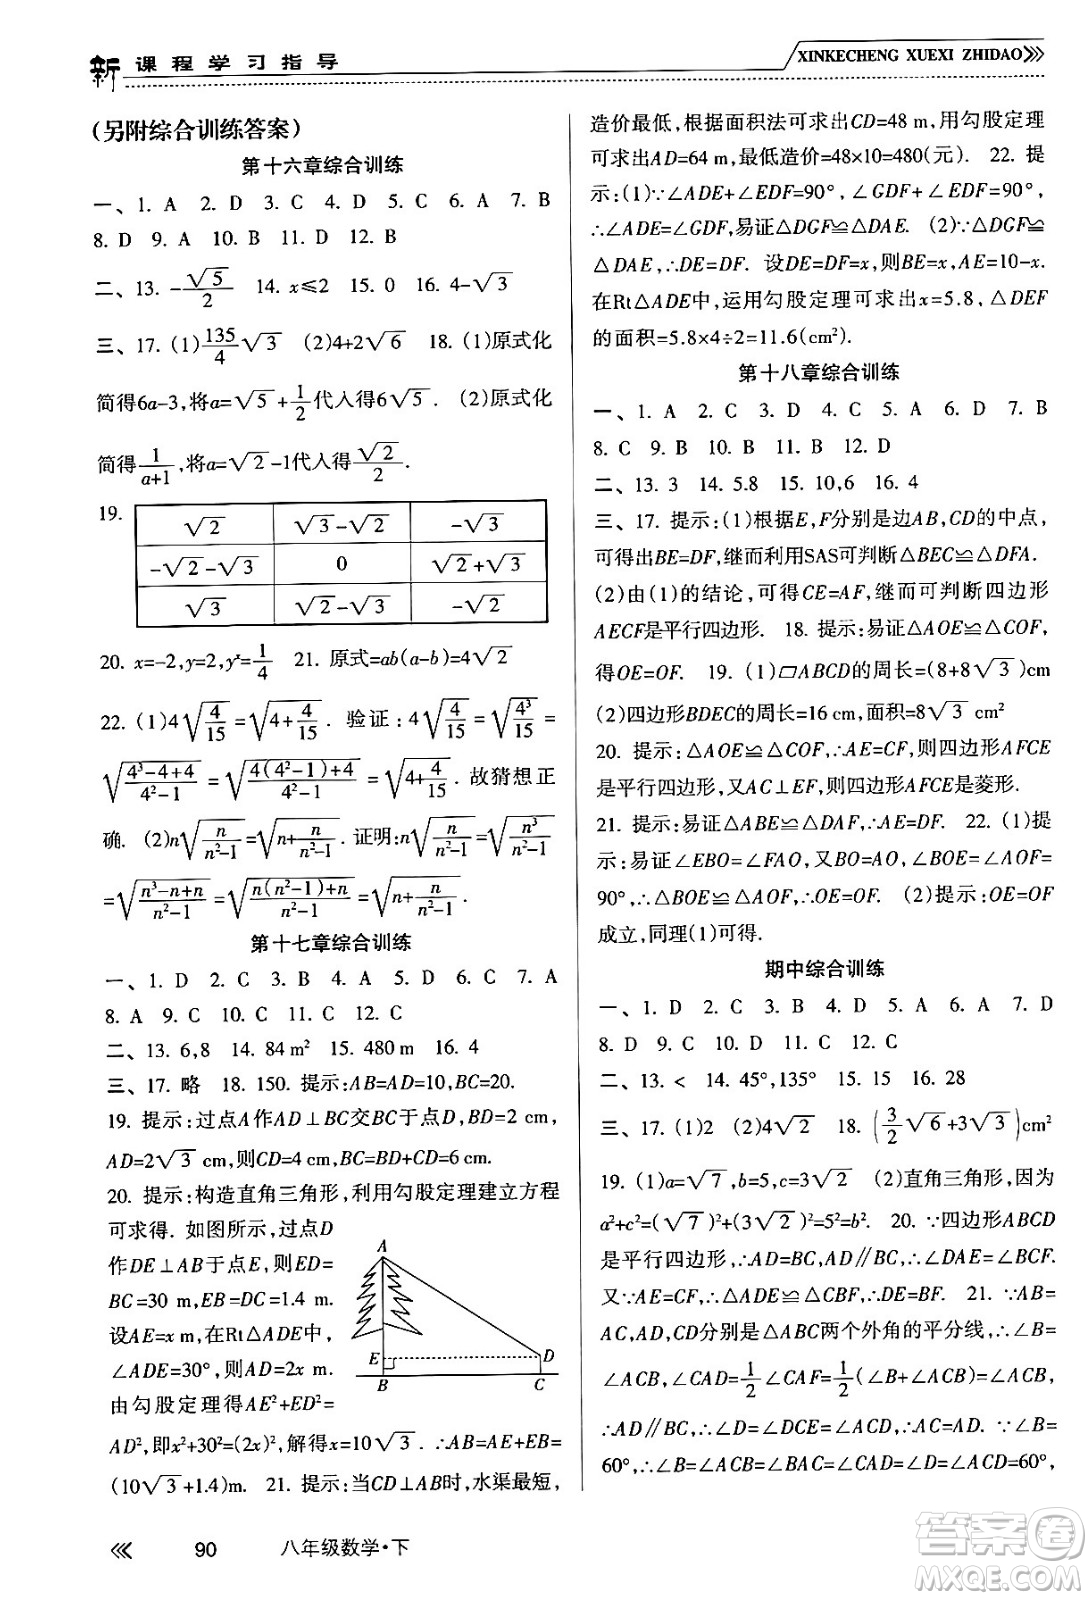 新课程学习指导
XINKECHENG XUEXI ZHIDAO
（另附综合训练答案）
第十六章综合训练
一、1. A 2. D 3. C 4. D 5. C 6. A 7. B
8. D 9. A 10. B 11. D 12. B
二、13. -√5/2 14. x≤2 15. 0 16. 4-√5
三、17. (1)135/4√3 (2)4+2√6 18. (1)原式化
简得6a-3,将a=√5+1/2代入得6√5. (2)原式化
简得1/(a+1),将a=√2-1代入得√2/2.
19.
√2 √3-√2 -√3
-√2-√3 0 √2+√3
√3 √2-√3 -√2
20. x=-2,y=2,yˣ=1/4 21. 原式=ab(a-b)=4√2
22. (1)4√(4/15)=√(4+4/15). 验证:4√(4/15)=√(4³/15)=
√((4³-4+4)/(4²-1))=√((4(4²-1)+4)/(4²-1))=√(4+4/15). 故猜想正
确. (2)n√(n/(n²-1))=√(n+n/(n²-1)). 证明:n√(n/(n²-1))=√(n³/(n²-1))
=√((n³-n+n)/(n²-1))=√((n(n²-1)+n)/(n²-1))=√(n+n/(n²-1)).
第十七章综合训练
一、1. D 2. C 3. B 4. A 5. C 6. C 7. A
8. A 9. C 10. C 11. C 12. C
二、13. 6,8 14. 84 m² 15. 480 m 16. 4
三、17. 略 18. 150. 提示:AB=AD=10,BC=20.
19. 提示:过点A作AD⊥BC交BC于点D,BD=2 cm,
AD=2√3 cm,则CD=4 cm,BC=BD+CD=6 cm.
20. 提示:构造直角三角形,利用勾股定理建立方程
可求得. 如图所示,过点D
作DE⊥AB于点E,则ED=
BC=30 m,EB=DC=1.4 m.
设AE=x m,在Rt△ADE中,
∠ADE=30°,则AD=2x m.
由勾股定理得AE²+ED²=
AD²,即x²+30²=(2x)²,解得x=10√3. ∴AB=AE+EB=
(10√3+1.4)m. 21. 提示:当CD⊥AB时,水渠最短,
A
E
D
B
C
造价最低,根据面积法可求出CD=48 m,用勾股定理
可求出AD=64 m,最低造价=48×10=480(元). 22. 提
示:(1)∵∠ADE+∠EDF=90°,∠GDF+∠EDF=90°,
∴∠ADE=∠GDF,易证△DGF≌△DAE. (2)∵△DGF≌
△DAE,∴DE=DF. 设DE=DF=x,则BE=AE=10-x.
在Rt△ADE中,运用勾股定理可求出x=5.8,△DEF
的面积=5.8×4÷2=11.6(cm²).
第十八章综合训练
一、1. A 2. C 3. D 4. A 5. D 6. D 7. B
8. C 9. B 10. B 11. B 12. D
二、13. 3 14. 5.8 15. 10,6 16. 4
三、17. 提示:(1)根据E,F分别是边AB,CD的中点,
可得出BE=DF,继而利用SAS可判断△BEC≌△DFA.
(2)由(1)的结论,可得CE=AF,继而可判断四边形
AECF是平行四边形. 18. 提示:易证△AOE≌△COF,
得OE=OF. 19. (1)▱ABCD的周长=(8+8√3)cm
(2)四边形BDEC的周长=16 cm,面积=8√3 cm²
20. 提示:△AOE≌△COF,∴AE=CF,则四边形AFCE
是平行四边形,又AC⊥EF,则四边形AFCE是菱形.
21. 提示:易证△ABE≌△DAF,∴AE=DF. 22. (1)提
示:易证∠EBO=∠FAO,又BO=AO,∠BOE=∠AOF=
90°,∴△BOE≌△AOF,∴OE=OF (2)提示:OE=OF
成立,同理(1)可得.
期中综合训练
一、1. D 2. C 3. B 4. D 5. A 6. A 7. D
8. D 9. D 10. D 11. C 12. C
二、13. < 14. 45°,135° 15. 15 16. 28
三、17. (1)2 (2)4√2 18. (3/2√6+3√3)cm²
19. (1)a=√7,b=5,c=3√2 (2)直角三角形,因为
a²+c²=(√7)²+(3√2)²=5²=b². 20. ∵四边形ABCD
是平行四边形,∴AD=BC,AD∥BC,∴∠DAE=∠BCF.
又∵AE=CF,∴△ADE≌△CBF,∴DE=BF. 21. ∵AB=
AC,AD,CD分别是△ABC两个外角的平分线,∴∠B=
∠ACB,∠CAD=1/2∠CAF=1/2(∠B+∠ACB)=∠ACB,
∴AD∥BC,∴∠D=∠DCE=∠ACD,∴AC=AD. ∵∠B=
60°,∴∠B=∠ACB=∠CAD=∠BAC=∠D=∠ACD=60°,
90 八年级数学·下
答案圈
MXQE.COM